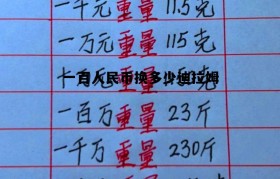 一千元重量 11.5克
一万元重量 115克
一百人民币换多少
一百万重量 23斤
一千万重量 230斤